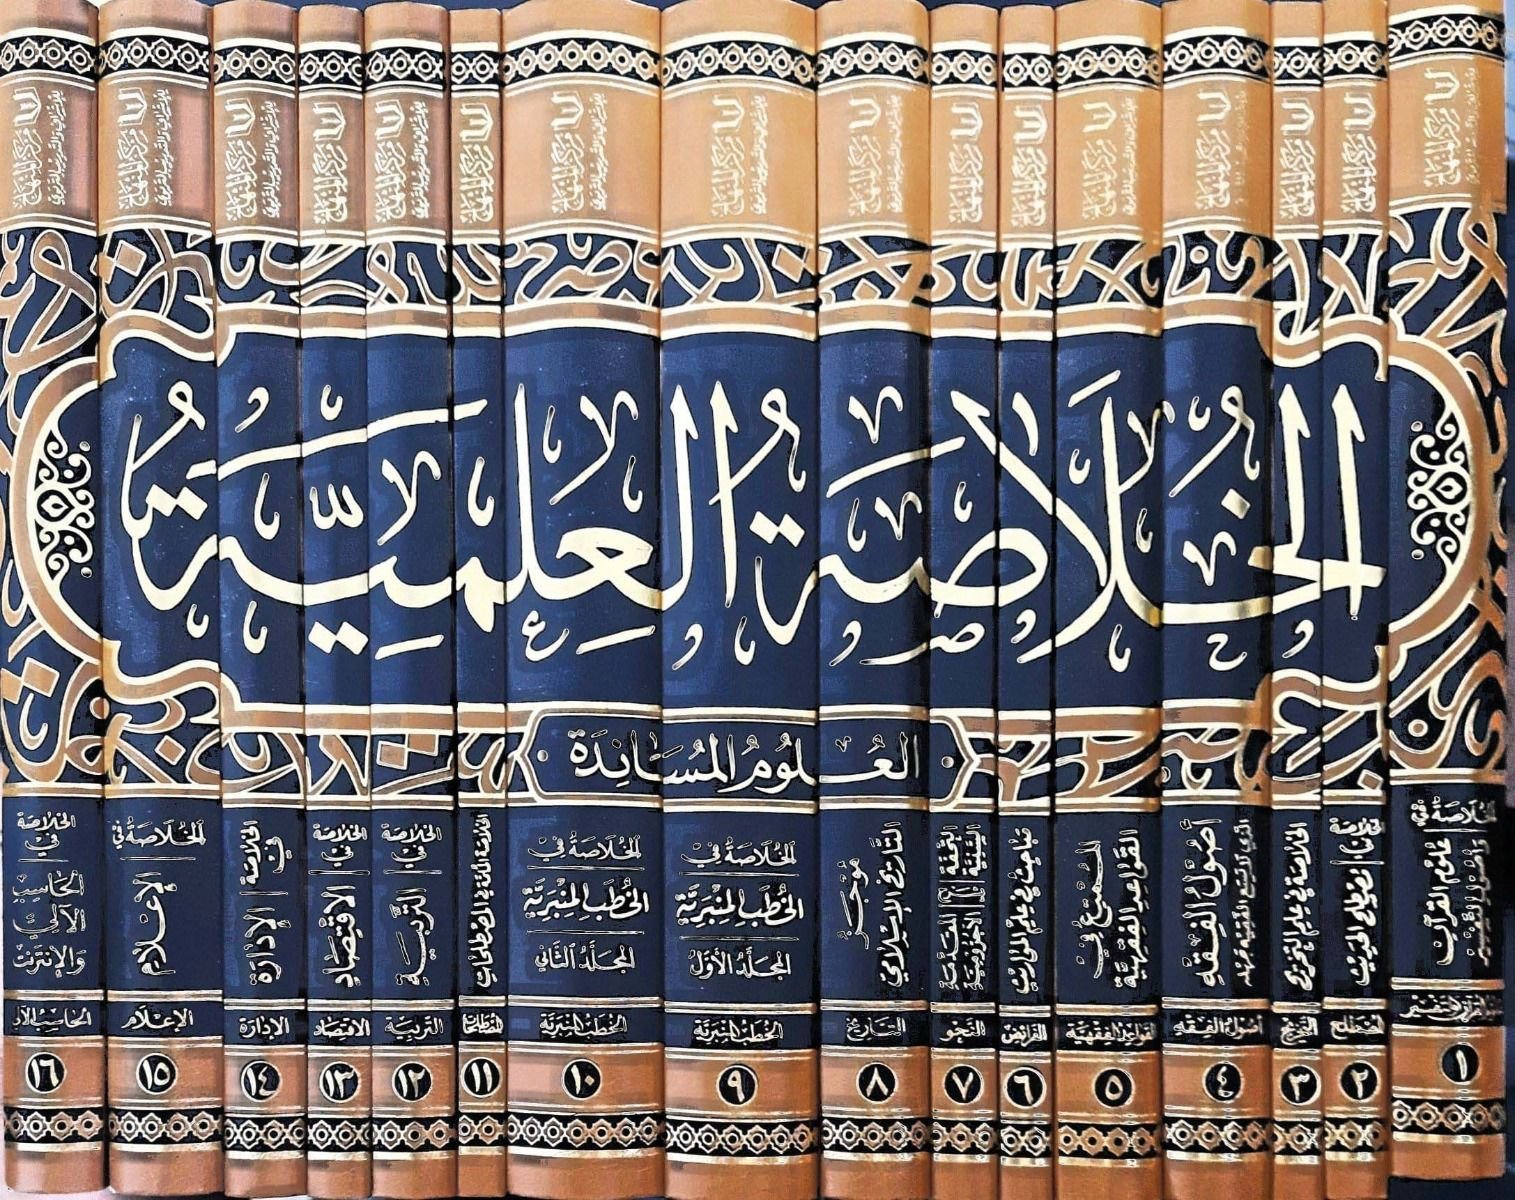 الخُلَاصَةُ العِلْمِيَّةُ
العُلُومُ المُسَانِدَة
الخلاصة في
علوم القرآن
١
الخلاصة في
مصطلح الحديث
المصطلح
٢
الخلاصة في علم التخريج
التخريج
٣
أصول الفقه
الذي لا يسع الفقيه جهله
أصول الفقه
٤
الممتع في
القواعد الفقهية
القواعد الفقهية
٥
مباحث في علم المواريث
الفرائض
٦
التحفة السنية
المقدمة الآجرومية
النحو
٧
موجز
التاريخ الإسلامي
التاريخ
٨
الخُلَاصَةُ في
الخُطَبِ المِنْبَرِيَّةِ
المجلد الأول
الخطب المنبرية
٩
الخُلَاصَةُ في
الخُطَبِ المِنْبَرِيَّةِ
المجلد الثاني
الخطب المنبرية
١٠
في المصطلحات
المصطلحات
١١
الخلاصة
في
التربية
التربية
١٢
الخلاصة
في
الاقتصاد
الاقتصاد
١٣
الخلاصة
في
الإدارة
الإدارة
١٤
الخلاصة في
الإعلام
الإعلام
١٥
الخلاصة
في
الحاسب
الآلي
والإنترنت
الحاسب الآلي
١٦